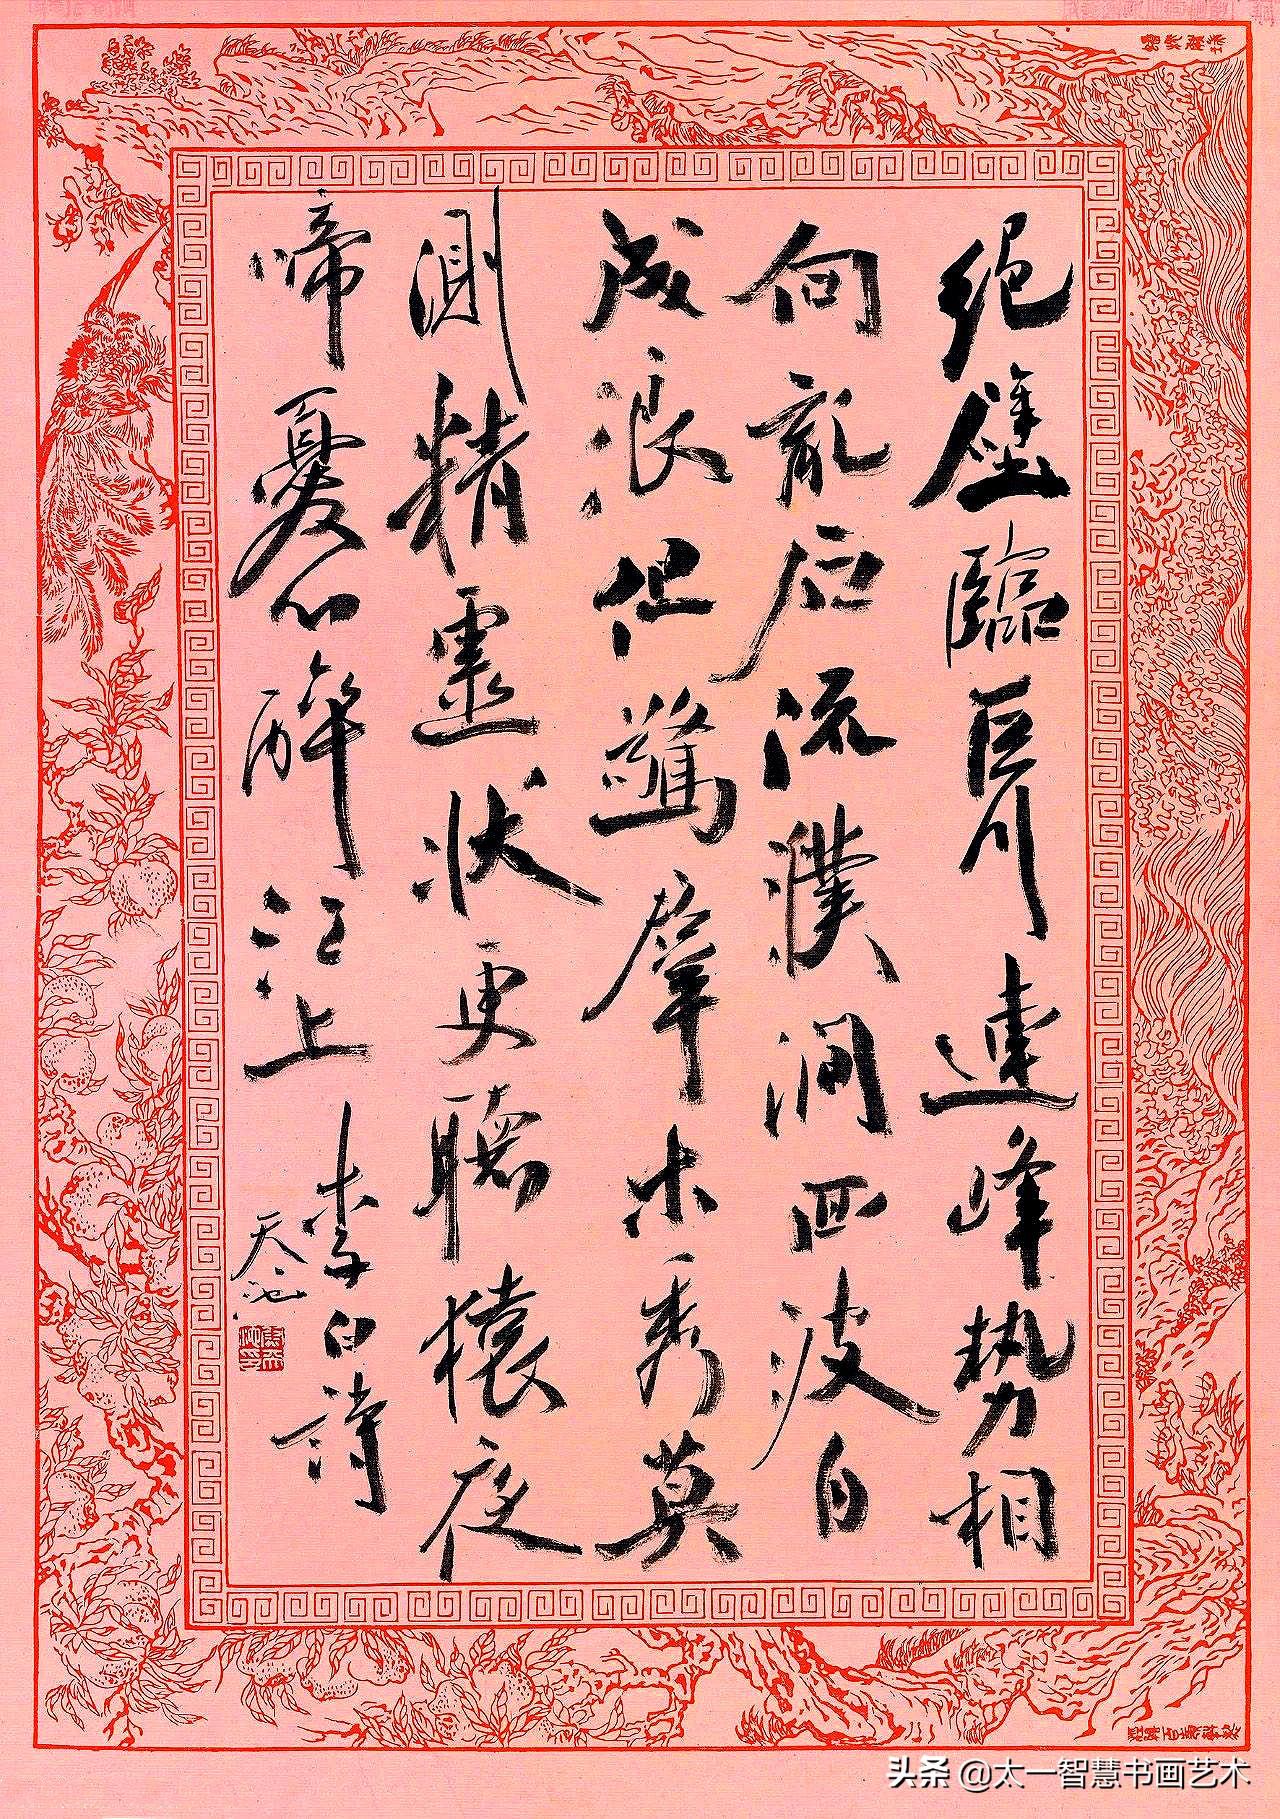 絕壁臨巨川連峰勢相
向亂石流洑澗回波自
成浪但驚群木秀莫
測精靈狀更聽猿夜
啼憂心醉江上李白詩
天池
头条@太一智慧书画艺术